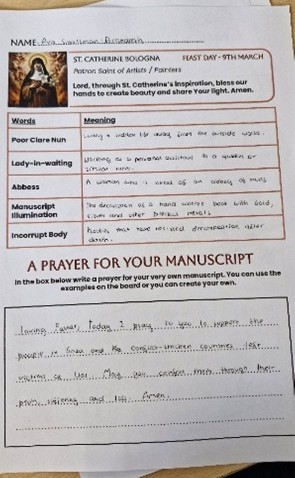 NAME Ava
ST. CATHERINE BOLOGNA FEAST DAY - 9TH MARCH
Patron Saint of Artists / Painters
Lord, through St. Catherine's inspiration, bless our
hands to create beauty and share Your light. Amen.
Words Meaning
Poor Clare Nun Living a life away from the outside world.
Lady-in-waiting Working as a personal assistant to a queen or
Abbess A woman who is head of an abbey of nuns
Manuscript The decoration of a hand written book with Gold,
Illumination silver and other precious metals
Incorrupt Body Bodies that have resisted decomposition after
death.
A PRAYER FOR YOUR MANUSCRIPT
In the box below write a prayer for your very own manuscript. You can use the
examples on the board or you can create your own.
loving Father, Today I pray to you to support the
people in Gaza and the conflict-stricken countries
victims of war. May you comfort them through their
pain, and Amen.